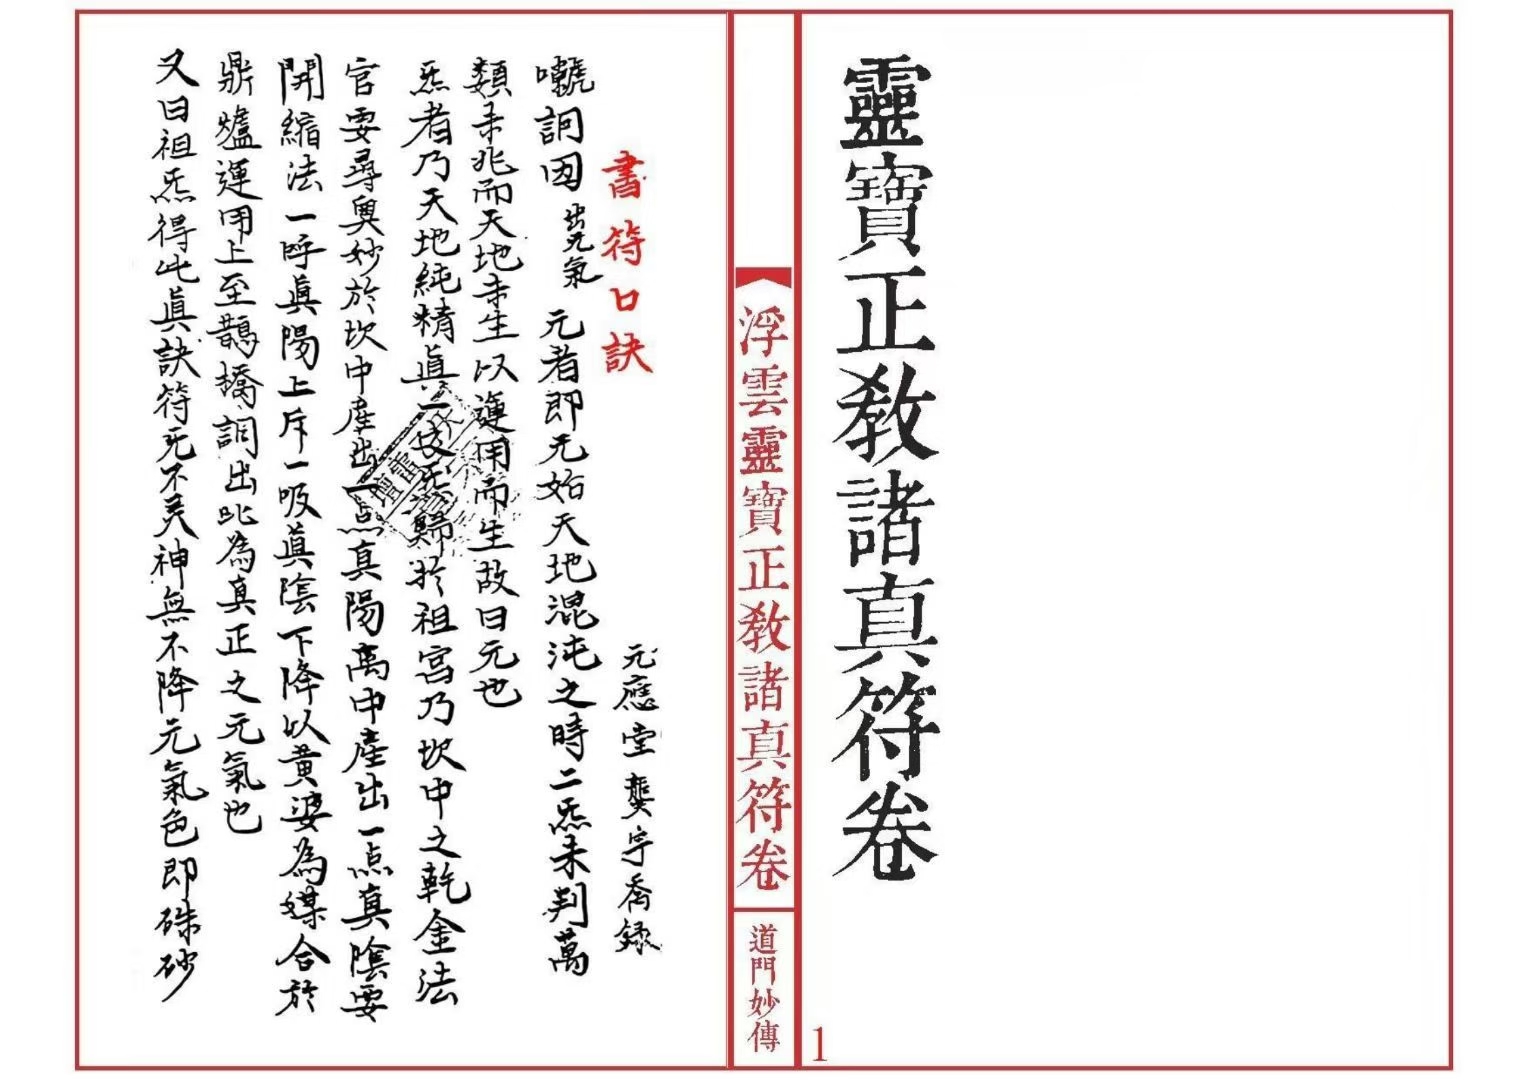 靈寶正教諸真符卷
浮雲靈寶正教諸真符卷
道門妙傳
1
書符口訣
元應堂龔宇喬錄
嚈詞囡出元氣元者即元始天地混沌之時二炁未判萬
類未兆而天地未生以運用而生故曰元也
炁者乃天地純精真一炁歸於祖宮乃坎中之乾金法
官要尋奧妙於坎中產出一点真陽离中產出一点真陰要
開縮法一呼真陽上斥一吸真陰下降以黄婆為媒合於
鼎爐運用上至鵲橋詞出此為真正之元氣也
又曰祖炁得此真訣符死不灵神無不降元氣色即硃砂